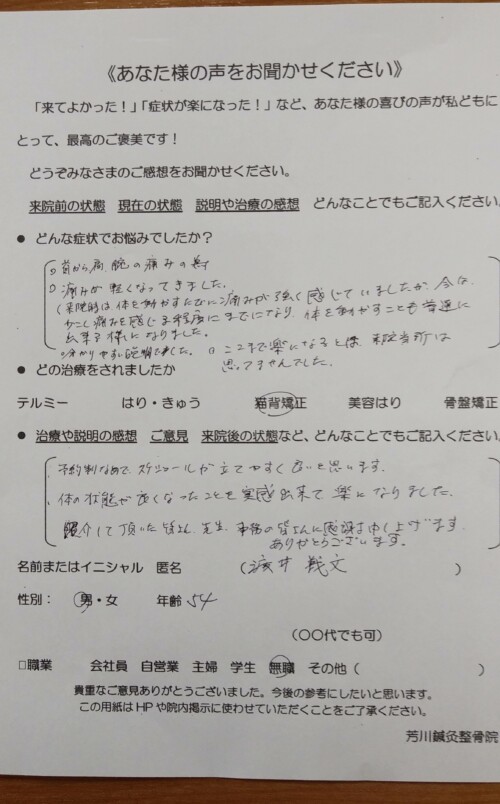 《あなた様の声をお聞かせください》
「来てよかった！」「症状が楽になった！」など、あなた様の喜びの声が私どもに
とって、最高のご褒美です！
どうぞみなさまのご感想をお聞かせください。
来院前の状態 現在の状態 説明や治療の感想 どんなことでもご記入ください。
● どんな症状でお悩みでしたか？
首から肩、腕の痛みの為
痛みが軽くなってきました。
(来院前は体を動かすたびに痛みが強く感じていましたが、今は、
少こし痛みを感じる程度にまでになり、体を動かすことも普通に
出来る様になりました。
分かりやすい説明でした。 ここまで楽になるとは、来院当所は
思ってませんでした。
● どの治療をされましたか
テルミー はり・きゅう 猫背矯正 美容はり 骨盤矯正
● 治療や説明の感想 ご意見 来院後の状態など、どんなことでもご記入ください。
予約制なので、スケジュールが立てやすく良いと思います。
体の状態が良くなったことを実感出来て楽になりました。
紹介して頂いた皆さん、先生、事務の皆さんに感謝申し上げます。
ありがとうございます。
名前またはイニシャル 匿名 ( )
性別： 男・女 年齢 54
(〇〇代でも可)
□職業 会社員 自営業 主婦 学生 無職 その他 ( )
貴重なご意見ありがとうございました。今後の参考にしたいと思います。
この用紙はHPや院内掲示に使わせていただくことをご了承ください。
芳川鍼灸整骨院